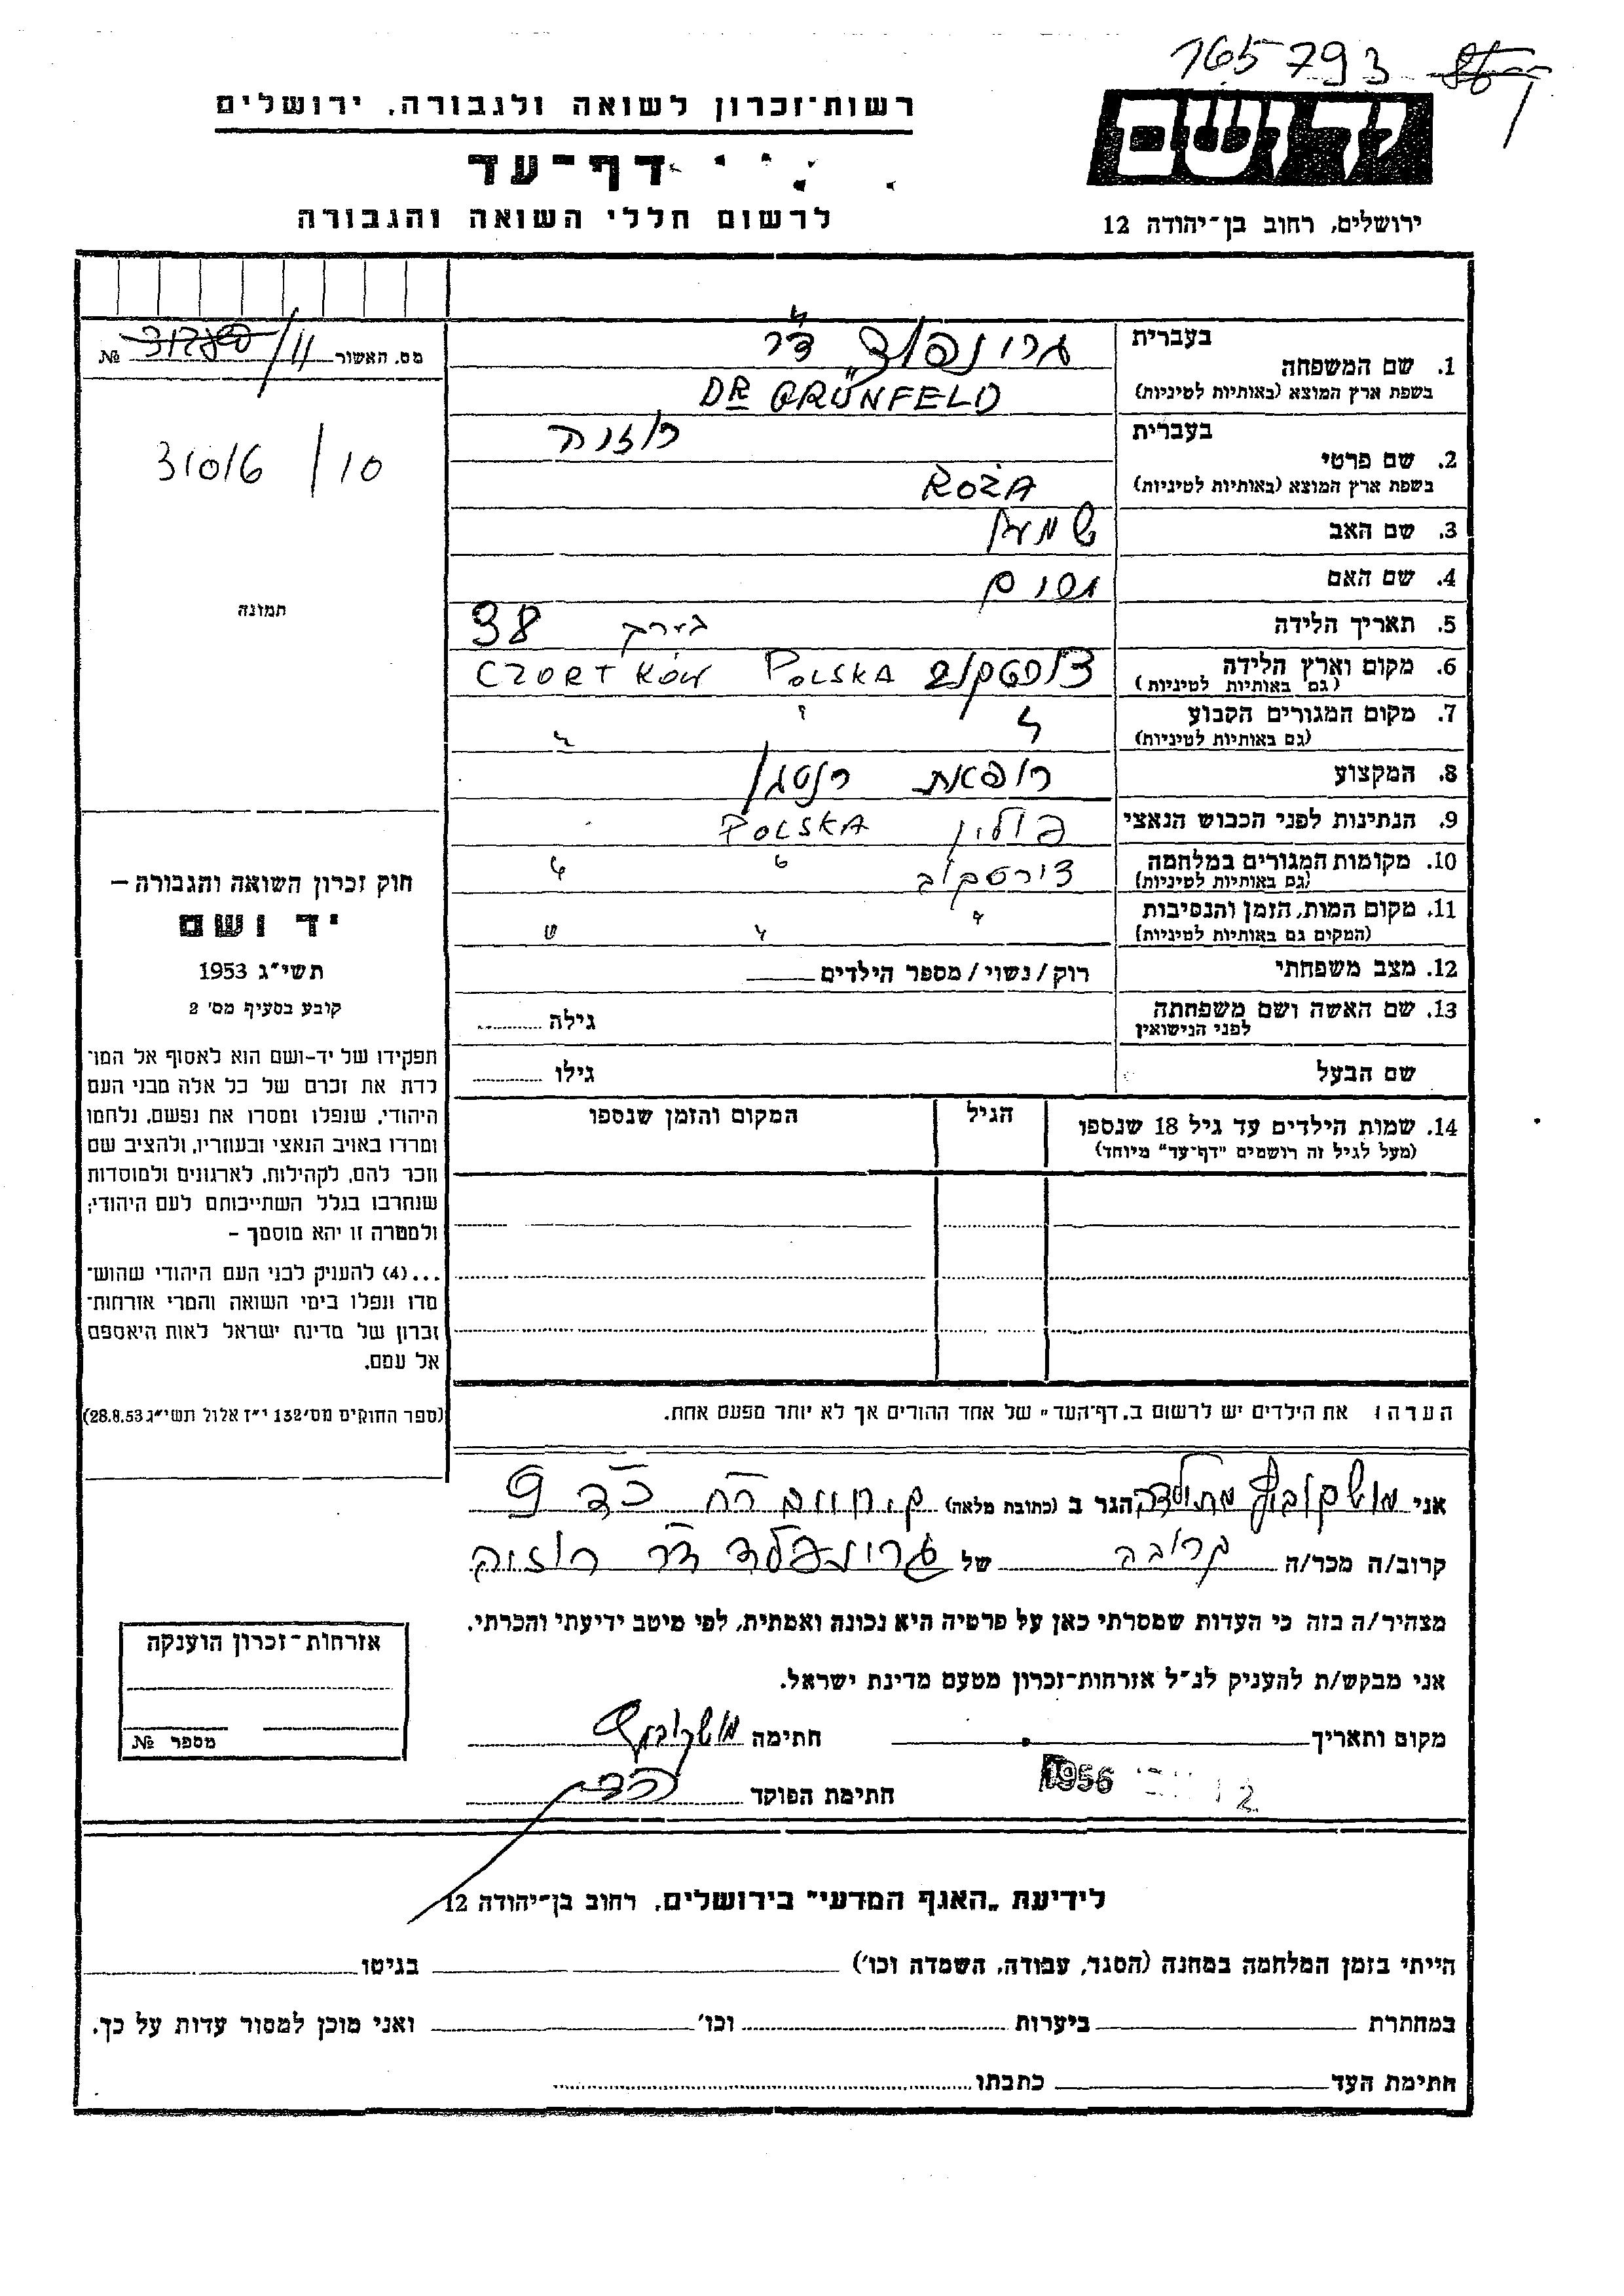 165793
רשות־זכרון לשואה ולגבורה, ירושלים
יד ושם
דף־עד
לרשום חללי השואה והגבורה
ירושלים, רחוב בן־יהודה 12
מס. האשור 11/ №
31016 /10
תמונה
1. שם המשפחה
בעברית גרונפלד ד"ר
בשפת ארץ המוצא (באותיות לטיניות) DR GRÜNFELD
2. שם פרטי
בעברית רוזה
בשפת ארץ המוצא (באותיות לטיניות) ROŻA
3. שם האב שמעון
4. שם האם
5. תאריך הלידה בערך 38
6. מקום וארץ הלידה צ'ורטקוב POLSKA CZORTKÓW
(גם באותיות לטיניות)
7. מקום המגורים הקבוע " " "
(גם באותיות לטיניות)
8. המקצוע רופאת רנטגן
9. הנתינות לפני הכבוש הנאצי פולין POLSKA
10. מקומות המגורים במלחמה צ'ורטקוב " "
(גם באותיות לטיניות)
11. מקום המות, הזמן והנסיבות " " "
(המקום גם באותיות לטיניות)
12. מצב משפחתי רוק/נשוי/מספר הילדים
13. שם האשה ושם משפחתה גילה
לפני הנישואין
שם הבעל גילו
14. שמות הילדים עד גיל 18 שנספו הגיל המקום והזמן שנספו
(מעל לגיל זה רושמים "דף־עד" מיוחד)
הערה: את הילדים יש לרשום ב"דף־העד" של אחד ההורים אך לא יותר מפעם אחת.
חוק זכרון השואה והגבורה –
יד ושם
תשי"ג 1953
קובע בסעיף מס' 2
תפקידו של יד־ושם הוא לאסוף אל המו־
לדת את זכרם של כל אלה מבני העם
היהודי, שנפלו ומסרו את נפשם, נלחמו
ומרדו באויב הנאצי ובעוזריו, ולהציב שם
וזכר להם, לקהילות, לארגונים ולמוסדות
שנחרבו בגלל השתייכותם לעם היהודי;
ולמטרה זו יהא מוסמך –
...(4) להעניק לבני העם היהודי שהוש־
מדו ונפלו בימי השואה והמרי אזרחות־
זכרון של מדינת ישראל לאות היאספם
אל עמם.
(ספר החוקים מס' 132 י"ז אלול תשי"ג 28.8.53)
אני מושקוביץ מתילדה הגר ב (כתובת מלאה) ק. חיים רח כד 9
קרוב/ה מכר/ה קרובה של גרונפלד דר רוזה
מצהיר/ה בזה כי העדות שמסרתי כאן על פרטיה היא נכונה ואמתית, לפי מיטב ידיעתי והכרתי.
אני מבקש/ת להעניק לנ"ל אזרחות־זכרון מטעם מדינת ישראל.
מקום ותאריך חתימה מושקוביץ
1956 חתימת הפוקד
אזרחות־זכרון הוענקה
מספר №
לידיעת "האגף המדעי" בירושלים, רחוב בן־יהודה 12
הייתי בזמן המלחמה במחנה (הסגר, עבודה, השמדה וכו') בגיטו
במחתרת ביערות וכו' ואני מוכן למסור עדות על כך.
חתימת העד כתבתו